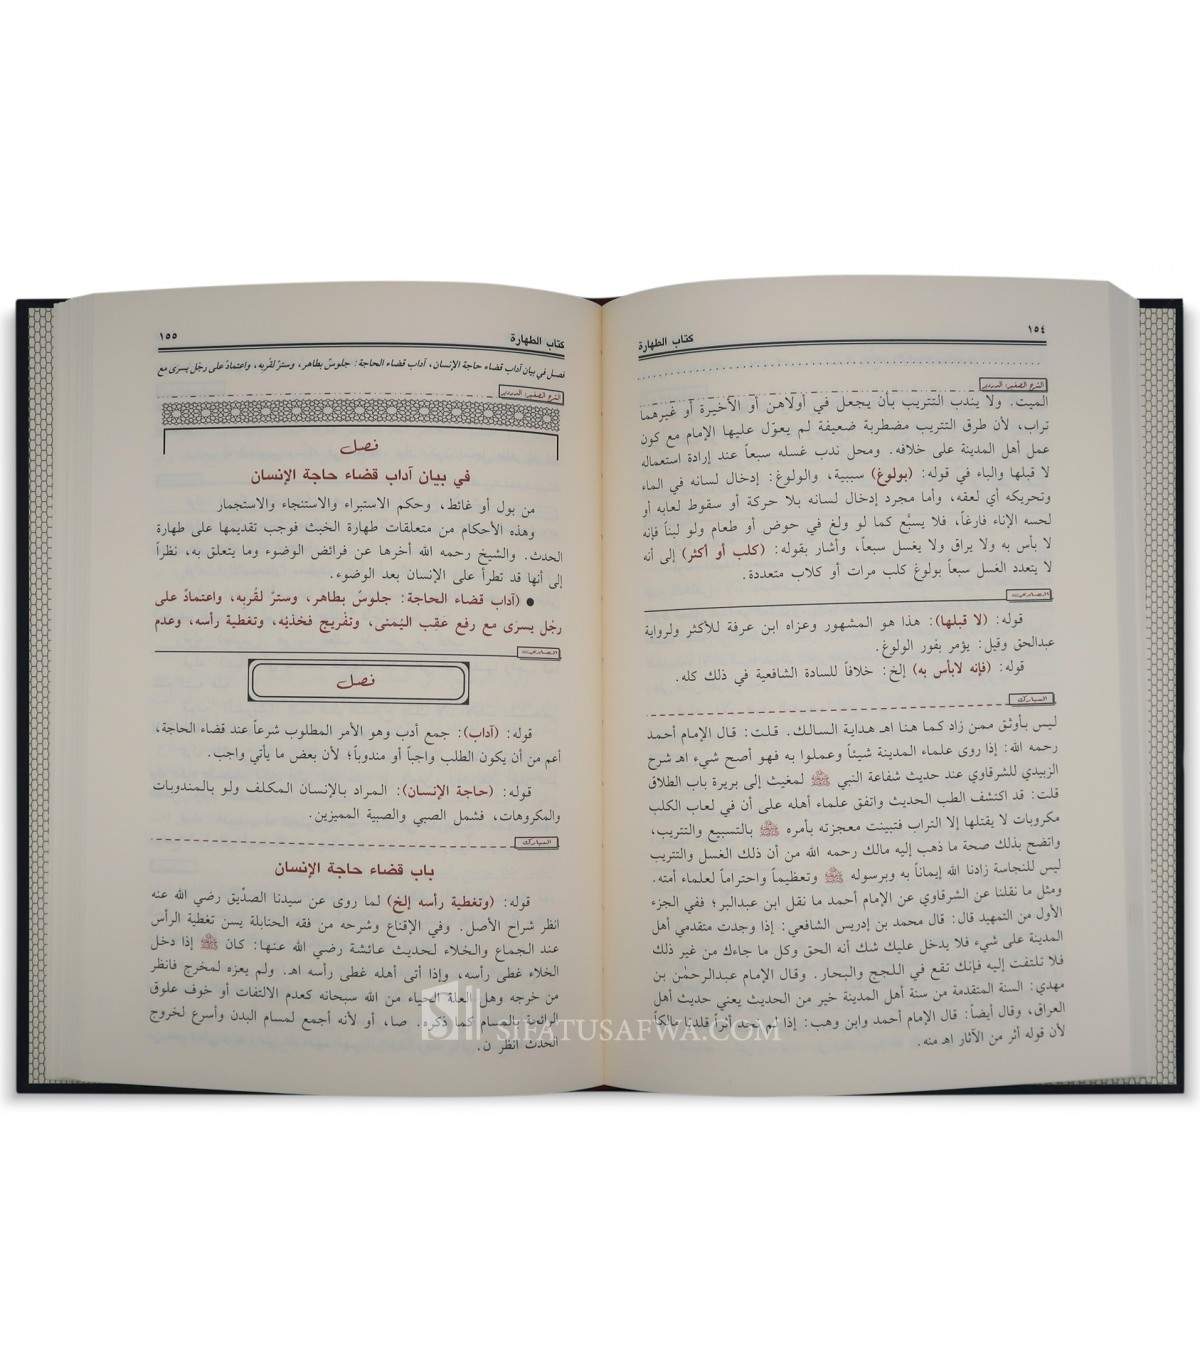 ١٥٤
كتاب الطهارة
الشرح الصغير: الدردير
الميت. ولا يندب التتريب بأن يجعل في أولاهن أو الأخيرة أو غيرهما
تراب، لأن طرق التتريب مضطربة ضعيفة لم يعوّل عليها الإمام مع كون
عمل أهل المدينة على خلافه. ومحل ندب غسله سبعاً عند إرادة استعماله
لا قبلها والباء في قوله: (بولوغ) سببية، والولوغ: إدخال لسانه في الماء
وتحريكه أي لعقه، وأما مجرد إدخال لسانه بلا حركة أو سقوط لعابه أو
لحسه الإناء فارغاً، فلا يسبّع كما لو ولغ في حوض أو طعام ولو لبناً فإنه
لا بأس به ولا يراق ولا يغسل سبعاً، وأشار بقوله: (كلب أو أكثر) إلى أنه
لا يتعدد الغسل سبعاً بولوغ كلب مرات أو كلاب متعددة.
قوله: (لا قبلها): هذا هو المشهور وعزاه ابن عرفة للأكثر ولرواية
عبدالحق وقيل: يؤمر بفور الولوغ.
قوله: (فإنه لابأس به) إلخ: خلافاً للسادة الشافعية في ذلك كله.
المبارك
ليس بأوثق ممن زاد كما هنا اهـ هداية السالك. قلت: قال الإمام أحمد
رحمه الله: إذا روى علماء المدينة شيئاً وعملوا به فهو أصح شيء اهـ شرح
الزبيدي للشرقاوي عند حديث شفاعة النبي ﷺ لمغيث إلى بريرة باب الطلاق
قلت: قد اكتشف الطب الحديث واتفق علماء أهله على أن في لعاب الكلب
مكروبات لا يقتلها إلا التراب فتبينت معجزته بأمره ﷺ بالتسبيع والتتريب،
واتضح بذلك صحة ما ذهب إليه مالك رحمه الله من أن ذلك الغسل والتتريب
ليس للنجاسة زادنا الله إيماناً به وبرسوله ﷺ وتعظيماً واحتراماً لعلماء أمته.
ومثل ما نقلنا عن الشرقاوي عن الإمام أحمد ما نقل ابن عبدالبر؛ ففي الجزء
الأول من التمهيد قال: قال محمد بن إدريس الشافعي: إذا وجدت متقدمي أهل
المدينة على شيء فلا يدخل عليك شك أنه الحق وكل ما جاءك من غير ذلك
فلا تلتفت إليه فإنك تقع في اللجج والبحار. وقال الإمام عبدالرحمٰن بن
مهدي: السنة المتقدمة من سنة أهل المدينة خير من الحديث يعني حديث أهل
العراق، وقال أيضاً: قال الإمام أحمد وابن وهب: إذا لم نجد أثراً قلدنا مالكاً
لأن قوله أثر من الآثار اهـ منه.
١٥٥
كتاب الطهارة
فصل في بيان آداب قضاء حاجة الإنسان، آداب قضاء الحاجة: جلوسٌ بطاهر، وسترٌ لقُربه، واعتمادٌ على رجْل يسرى مع
الشرح الصغير: الدردير
فصل
في بيان آداب قضاء حاجة الإنسان
من بول أو غائط، وحكم الاستبراء والاستنجاء والاستجمار
وهذه الأحكام من متعلقات طهارة الخبث فوجب تقديمها على طهارة
الحدث. والشيخ رحمه الله أخرها عن فرائض الوضوء وما يتعلق به، نظراً
إلى أنها قد تطرأ على الإنسان بعد الوضوء.
● (آداب قضاء الحاجة: جلوسٌ بطاهر، وسترٌ لقُربه، واعتمادٌ على
رجْل يسرى مع رفع عَقِب اليُمنى، وتفْريج فخذيْه، وتغطية رأسه، وعدم
فصل
قوله: (آداب): جمع أدب وهو الأمر المطلوب شرعاً عند قضاء الحاجة،
أعم من أن يكون الطلب واجباً أو مندوباً؛ لأن بعض ما يأتي واجب.
قوله: (حاجة الإنسان): المراد بالإنسان المكلف ولو بالمندوبات
والمكروهات، فشمل الصبي والصبية المميزين.
المبارك
باب قضاء حاجة الإنسان
قوله: (وتغطية رأسه إلخ) لما روى عن سيدنا الصدّيق رضي الله عنه
انظر شراح الأصل. وفي الإقناع وشرحه من فقه الحنابلة يسن تغطية الرأس
عند الجماع والخلاء لحديث عائشة رضي الله عنها: كان ﷺ إذا دخل
الخلاء غطى رأسه، وإذا أتى أهله غطى رأسه اهـ. ولم يعزه لمخرج فانظر
من خرجه وهل العلة الحياء من الله سبحانه كعدم الالتفات أو خوف علوق
الرائحة بالمسام كما ذكره. صا، أو لأنه أجمع لمسام البدن وأسرع لخروج
الحدث انظر ن.
SIFATUSAFWA.COM